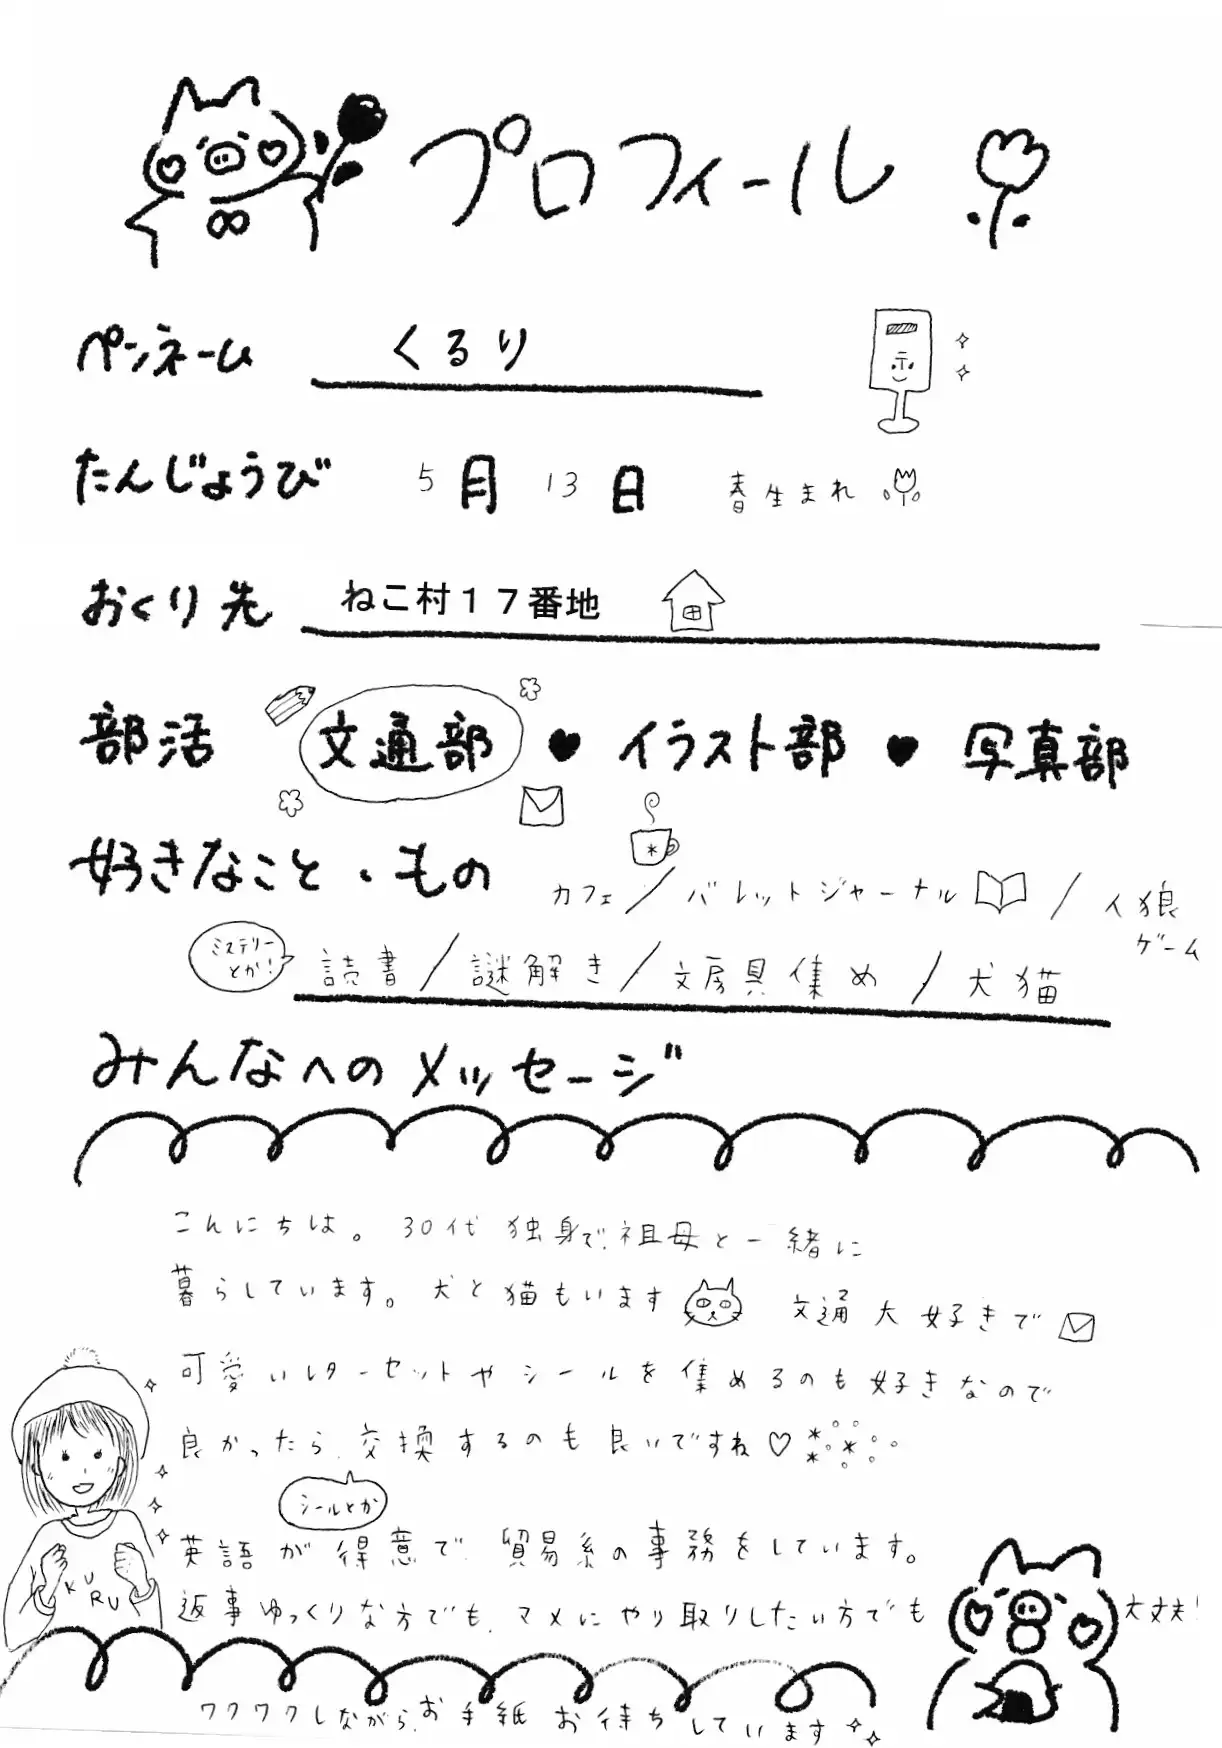 プロフィール
ペンネーム くるり
たんじょうび 5月13日 春生まれ
おくり先 ねこ村17番地
部活 文通部 ♥ イラスト部 ♥ 写真部
好きなこと・もの カフェ/バレットジャーナル/人狼
ゲーム
ミステリー
とか!
読書/謎解き/文房具集め/犬猫
みんなへのメッセージ
こんにちは。30代独身で祖母と一緒に
暮らしています。犬と猫もいます 文通大好きで
可愛いレターセットやシールを集めるのも好きなので
良かったら、交換するのも良いですね♡
シールとか
英語が得意で、貿易系の事務をしています。
KU
RU
返事ゆっくりな方でも、マメにやり取りしたい方でも大丈夫!
ワクワクしながら、お手紙お待ちしています